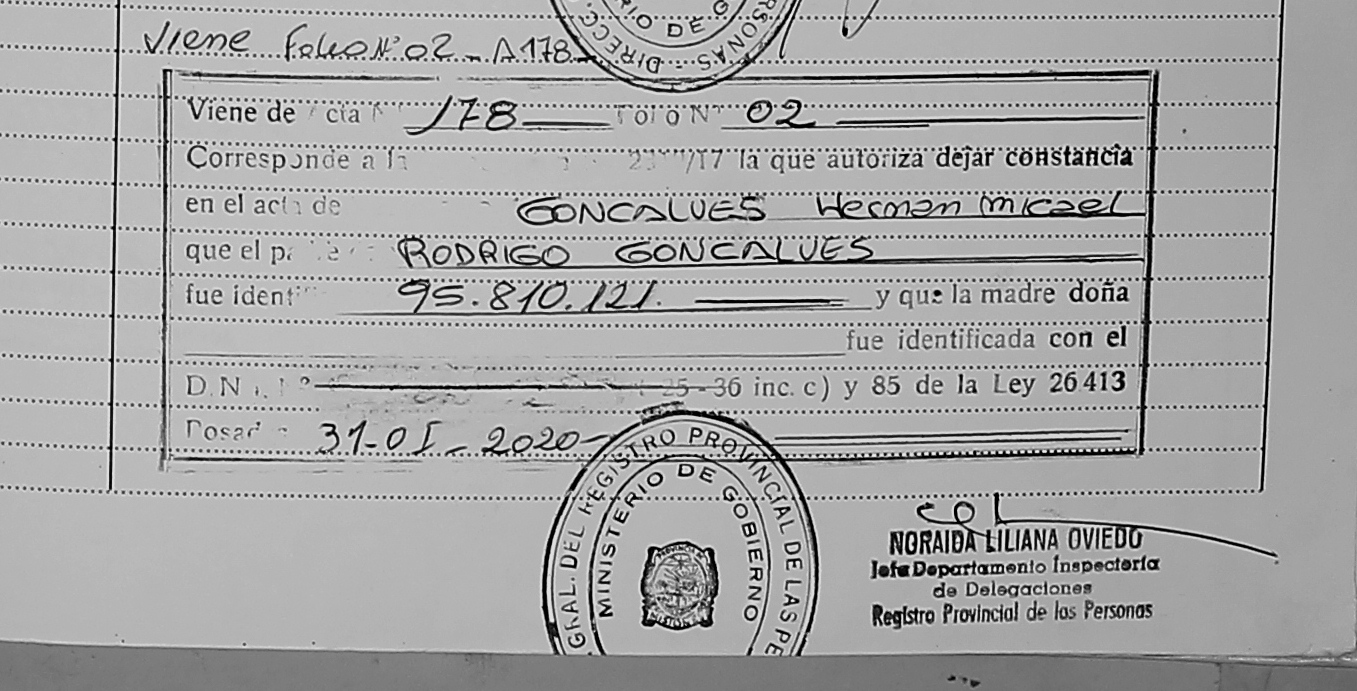 RIO DE G
DIRECC. PERSONAS
Viene Folio Nº 02 - A 178
Viene de cta N 178 Folio Nº 02
Corresponde a la /17 la que autoriza dejar constancia
en el acta de GONCALVES Hernan micael
que el RODRIGO GONCALVES
fue ident 95.810.121. y que la madre doña
fue identificada con el
D.N 25 - 36 inc. c) y 85 de la Ley 26413
Posad 31-01-2020-
GRAL. DEL REGISTRO PROVINCIAL DE LAS PE
MINISTERIO DE GOBIERNO
NORAIDA LILIANA OVIEDO
Jefa Departamento Inspectoría
de Delegaciones
Registro Provincial de las Personas